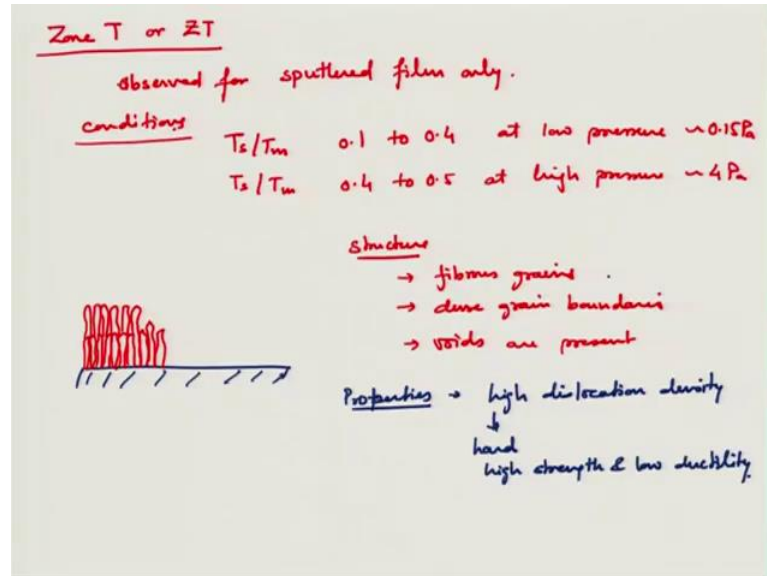 Zone T or ZT
observed for sputtered film only.
conditions
Ts/Tm 0.1 to 0.4 at low pressure ~0.15Pa
Ts/Tm 0.4 to 0.5 at high pressure ~4Pa
structure
→ fibrous grains.
→ dense grain boundaries
→ voids are present
Properties → high dislocation density
↓
hard
high strength & low ductility.